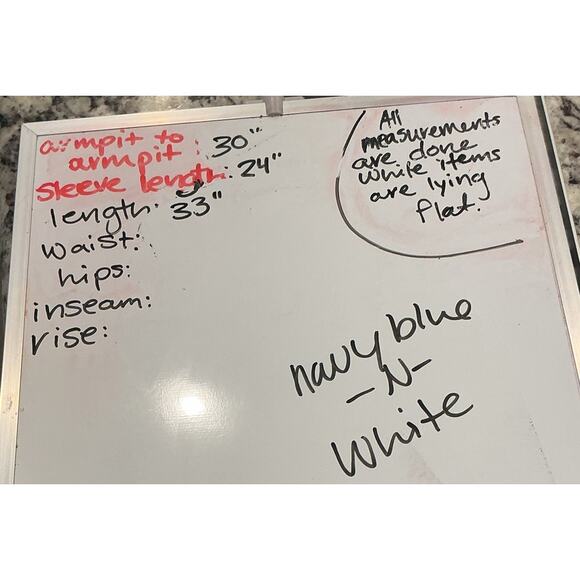 armpit to
armpit : 30"
sleeve length: 24"
length: 33"
waist:
hips:
inseam:
rise:
All
measurements
are done
while items
are lying
flat.
navy blue
-N-
white